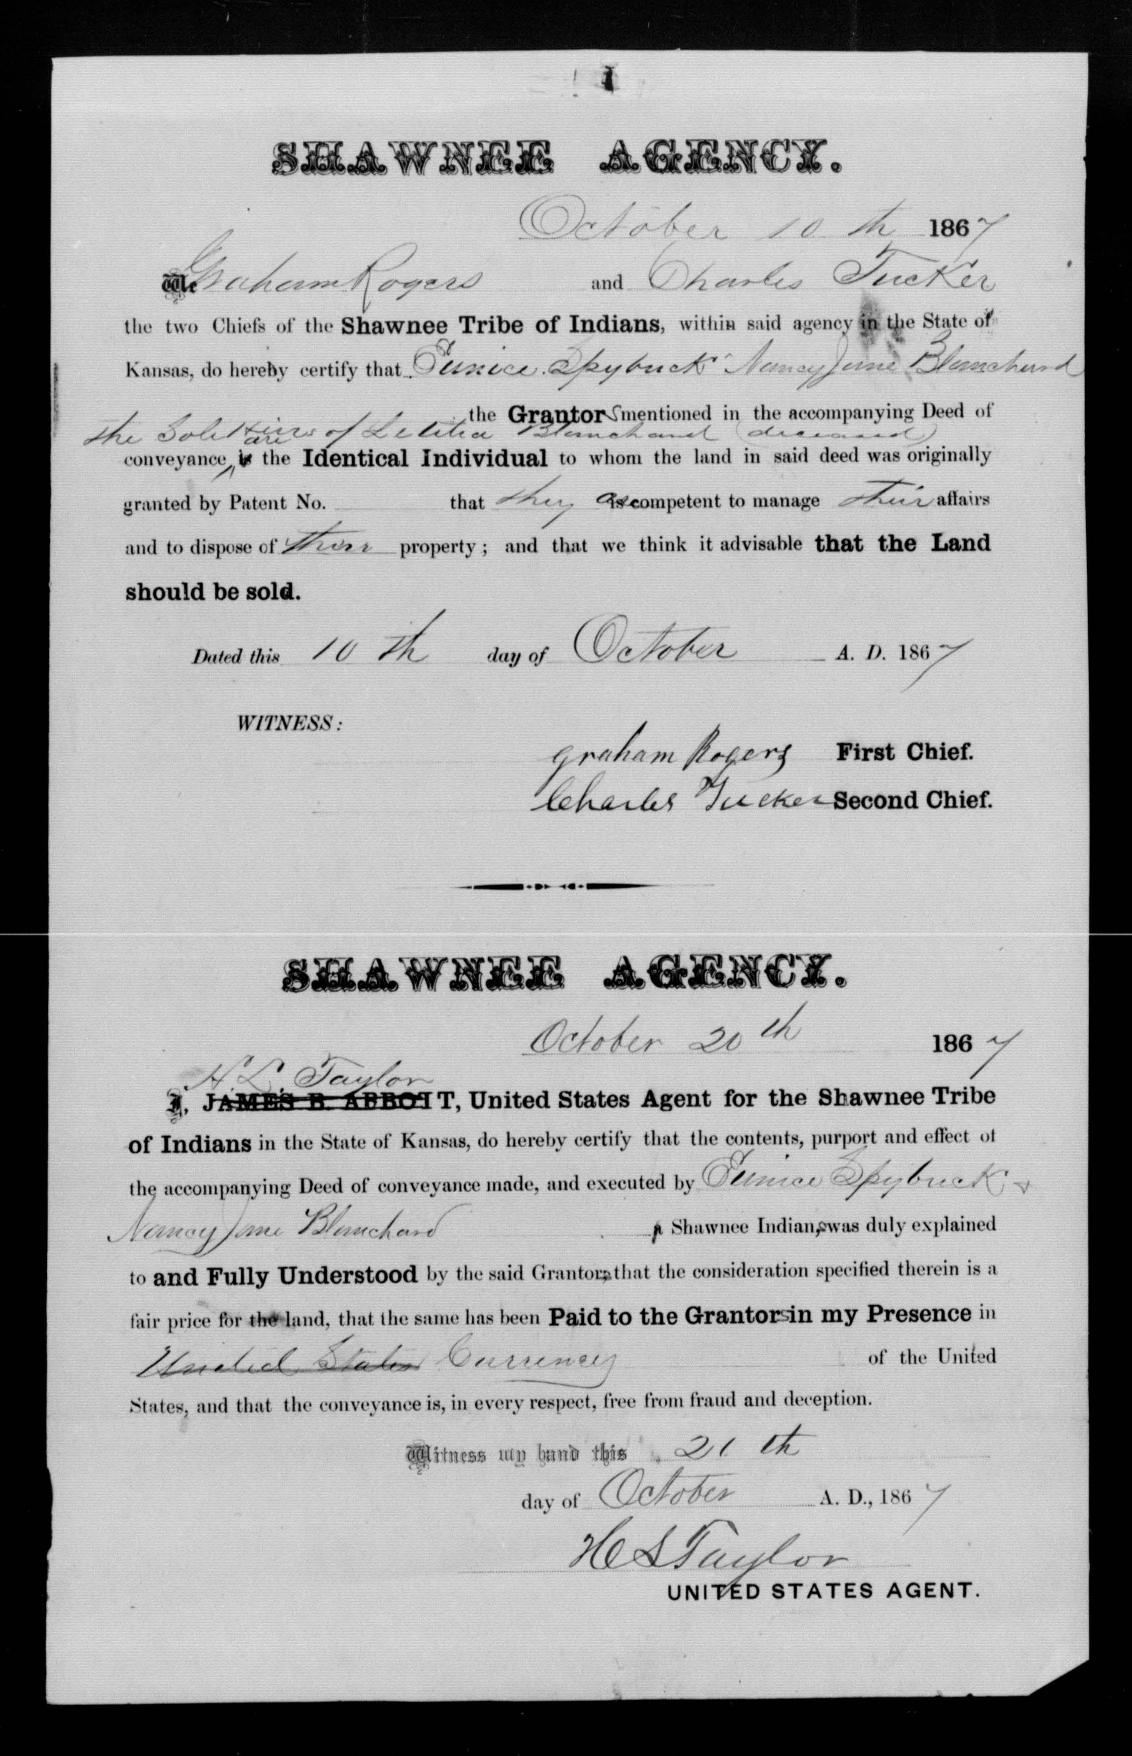 SHAWNEE AGENCY.
October 10 th 1867
We Graham Rogers and Charles Tucker
the two Chiefs of the Shawnee Tribe of Indians, within said agency in the State of
Kansas, do hereby certify that Eunice Spybuck Nancy Jane Blanchard
the Grantors mentioned in the accompanying Deed of
the Sole Heirs of Letitia Blanchard (deceased)
are
conveyance, is the Identical Individual to whom the land in said deed was originally
granted by Patent No. that they are competent to manage their affairs
and to dispose of their property; and that we think it advisable that the Land
should be sold.
Dated this 10 th day of October A. D. 1867
WITNESS:
graham Rogers First Chief.
Charles Tucker Second Chief.
SHAWNEE AGENCY.
October 20 th 1867
Taylor
I, JAMES B. ABBOTT, United States Agent for the Shawnee Tribe
of Indians in the State of Kansas, do hereby certify that the contents, purport and effect of
the accompanying Deed of conveyance made, and executed by Eunice Spybuck &
Nancy Jane Blanchard a Shawnee Indians, was duly explained
to and Fully Understood by the said Grantors, that the consideration specified therein is a
fair price for the land, that the same has been Paid to the Grantors in my Presence in
United States Currency of the United
States, and that the conveyance is, in every respect, free from fraud and deception.
Witness my hand this 21 th
day of October A. D., 1867
Taylor
UNITED STATES AGENT.